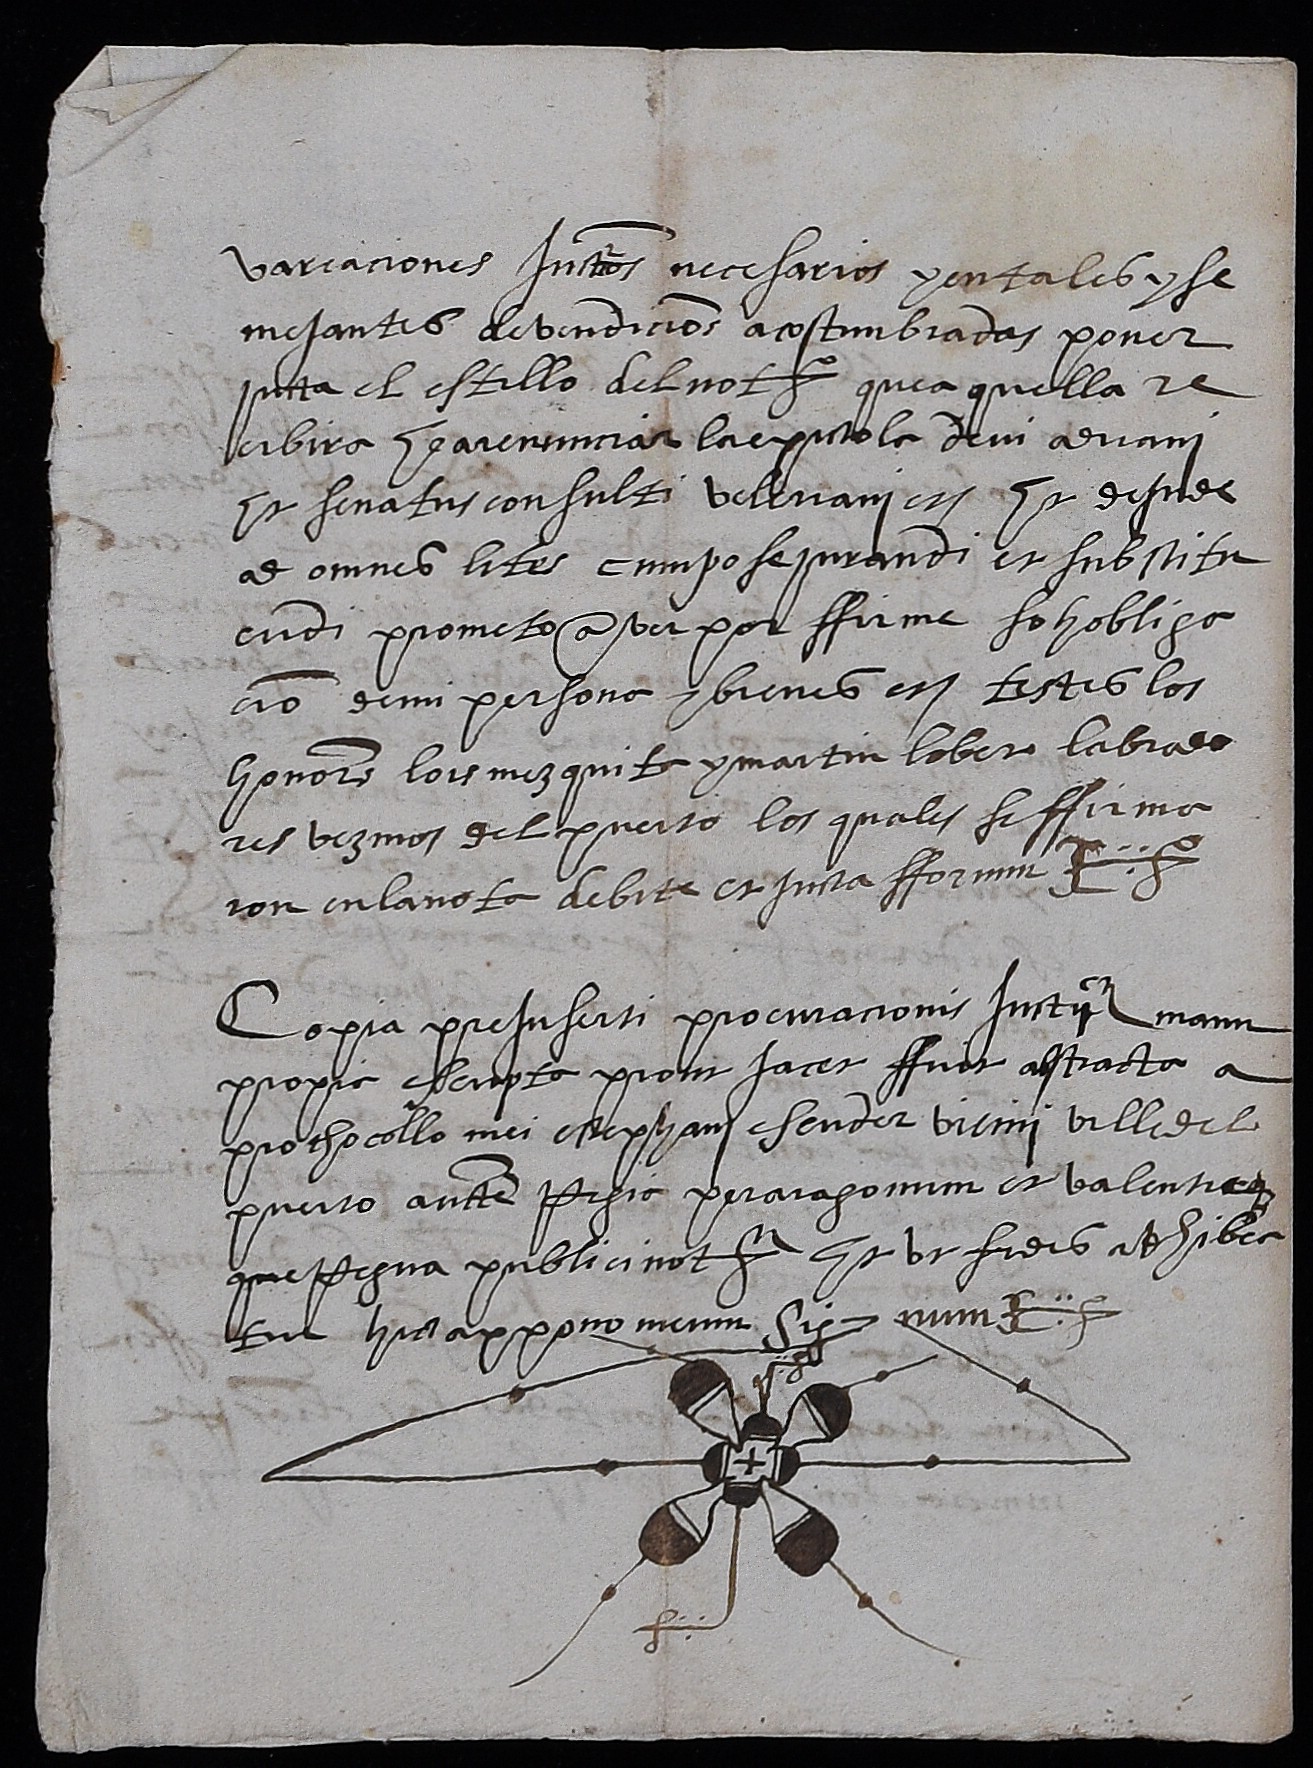 variaciones Inctos necesarios y en tales y se
mejantes de vendicios acostumbradas poner
juxta el estillo del not que aquella re
cibira Et a renunciar la epistola devi adriani
Et senatus consulti velleyani etz Et dejude
ad omnes lites cum posse jurandi et substitu
endi prometo aver por ffirme so hobliga
cio de mi persona y bienes etz testes los
honors lois mezquita y martin lobera labrado
res vezinos del puerto los quales se ffirma
ron en la nota debite et juxta fforum
Copia preInserti procuracionis Inctj manu
propia escripta prout jacet ffuit abstracta a
prothocollo mei estephanj esender vicini ville del
puerto aucte Regia per aragonum et valentie
que Regna publici not Et ut fides adhibea
tur hic appono meum Sig num